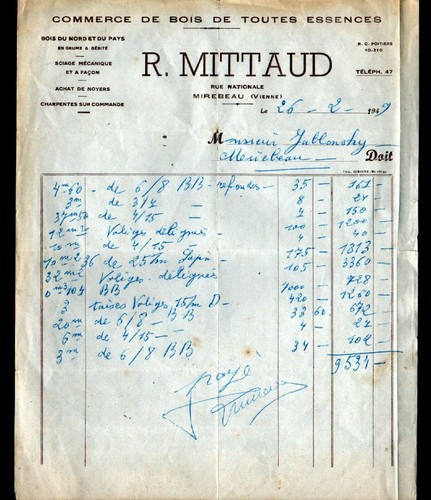 COMMERCE DE BOIS DE TOUTES ESSENCES
BOIS DU NORD ET DU PAYS
EN GRUME & DÉBITÉ
SCIAGE MÉCANIQUE
ET A FAÇON
ACHAT DE NOYERS
CHARPENTES SUR COMMANDE
R. MITTAUD
RUE NATIONALE
MIREBEAU (VIENNE)
R. C. POITIERS
10-310
TÉLÉPH. 47
Le 26 - 2 - 1949
Monsieur Jablonsky
Mirebeau Doit
4m60 - de 6/8 BB - refendues 35 - 161 -
3m - de 3/4 8 - 24 -
37m50 de 4/15 - 4 - 150 -
12m2 Voliges déligneés 100 - 1200 -
10m de 4/15 - 4 - 40 -
10m2 36 de 25mm Sapin 175 - 1813 -
32m2 Voliges deligneés 105 - 3360 -
0m3104 BB 7000 - 728 -
3 toises Voliges 15m 420 - 1260 -
20m de 6/8 - BB 33 60 - 672 -
6m de 4/15 - 4 - 24 -
3m de 6/8 BB 34 - 102 -
9534 -
payé